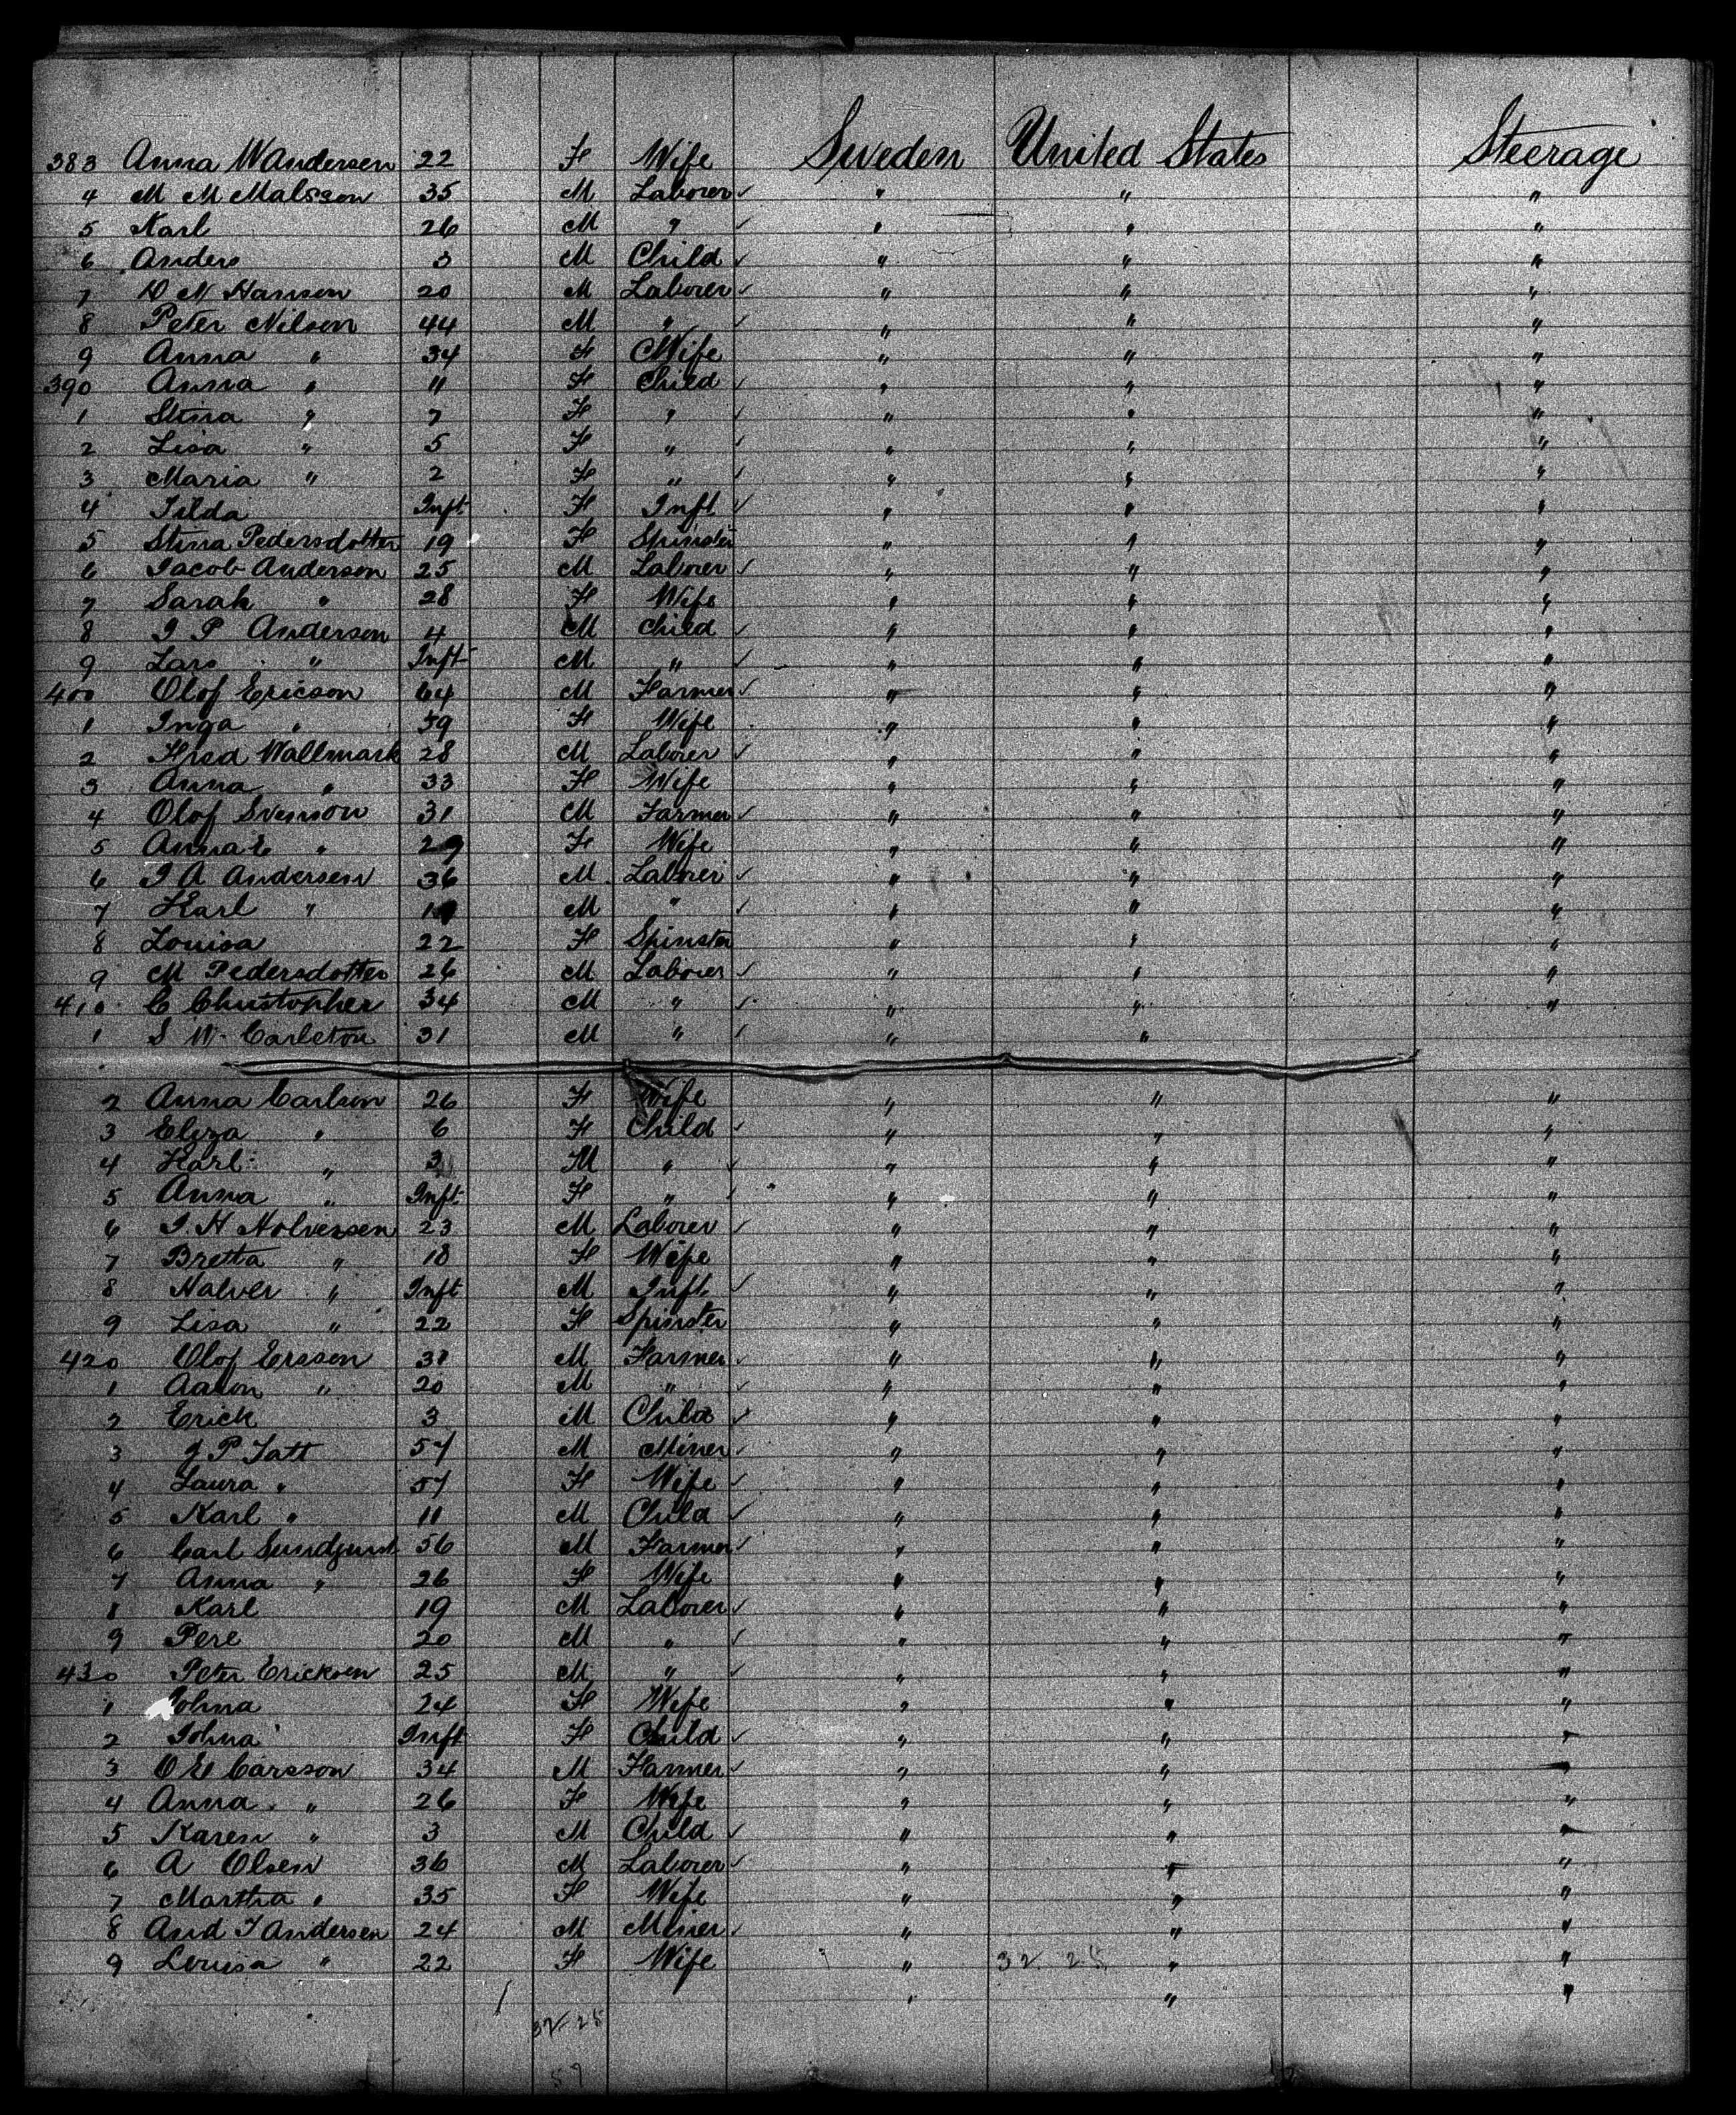 383 Anna W Andersen 22 F Wife Sweden United States Steerage
4 M M Malsson 35 M Laborer ✓ " " "
5 Karl 26 M " ✓ " " "
6 Anders 3 M Child ✓ " " "
7 N Hanson 20 M Laborer ✓ " " "
8 Peter Nilson 44 M " ✓ " " "
9 Anna " 34 F Wife " " "
390 Anna " 11 F Child ✓ " " "
1 Stina " 7 F " ✓ " " "
2 Lisa " 5 F " ✓ " " "
3 Maria " 2 F " ✓ " " "
4 Tilda Inft F Inft ✓ " " "
5 Stina Pedersdotter 19 F Spinster " " "
6 Jacob Anderson 25 M Laborer ✓ " " "
7 Sarah " 28 F Wife " " "
8 I P Anderson 4 M Child ✓ " " "
9 Lars " Inft M " ✓ " " "
400 Olof Ericson 64 M Farmer ✓ " " "
1 Inga " 59 F Wife " " "
2 Fred Wallmark 28 M Laborer ✓ " " "
3 Anna " 33 F Wife " " "
4 Olof Svenson 31 M Farmer ✓ " " "
5 Anna E " 29 F Wife " " "
6 I A Andersen 36 M Laborer ✓ " " "
7 Karl " M " ✓ " " "
8 Louisa 22 F Spinster " " "
9 M Pedersdotter 26 M Laborer ✓ " " "
410 C Christopher 34 M " ✓ " " "
1 S W Carleton 31 M " ✓ " "
2 Anna Carlson 26 F Wife " " "
3 Eliza " 6 F Child ✓ " " "
4 Karl " 3 M " ✓ " " "
5 Anna " Inft F " ✓ " " "
6 I. H Holversen 23 M Laborer ✓ " " "
7 Bretta " 18 F Wife " " "
8 Halver " Inft M Inft ✓ " " "
9 Lisa " 22 F Spinster " " "
420 Olof Ersson 31 M Farmer ✓ " " "
1 Aaron " 20 M " ✓ " " "
2 Erick 3 M Child ✓ " " "
3 J P Tatt 57 M Miner ✓ " " "
4 Laura " 57 F Wife ✓ " " "
5 Karl " 11 M Child ✓ " " "
6 Carl Sundquist 56 M Farmer ✓ " " "
7 Anna " 26 F Wife " " "
8 Karl 19 M Laborer ✓ " " "
9 Pere 20 M " ✓ " " "
430 Peter Ericksen 25 M " ✓ " " "
1 Johna 24 F Wife " " "
2 Johna Inft F Child ✓ " " "
3 O E Carsson 34 M Farmer ✓ " " "
4 Anna " 26 F Wife " " "
5 Karen " 3 M Child ✓ " " "
6 A Olsen 36 M Laborer ✓ " " "
7 Martha " 35 F Wife " " "
8 And J Andersen 24 M Miner ✓ " " "
9 Louisa " 22 F Wife " 32 25 " "
" " "
32 25
59